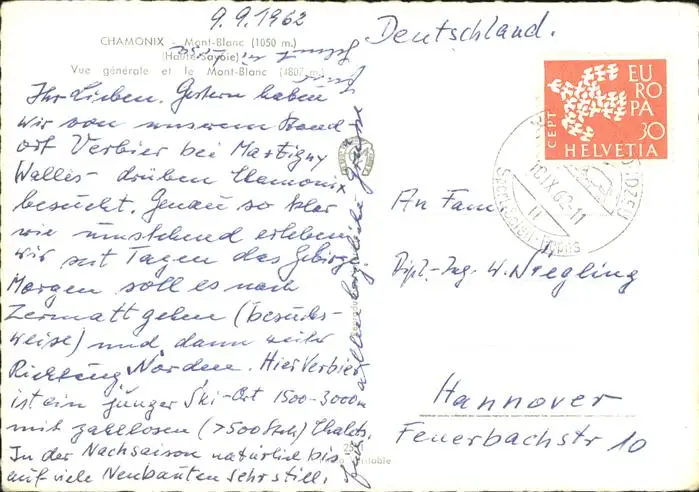 9.9.1962
CHAMONIX - Mont-Blanc (1050 m.)
(Haute-Savoie)
Vue générale et le Mont-Blanc (4807 m.)
Ihr Lieben. Gestern haben
wir von unserem Stand
ort Verbier bei Martigny
Wallis - drüben Chamonix
besucht. Genau so klar
wie umstehend erleben
wir seit Tagen das Gebirge
Morgen soll es nach
Zermatt gehen (besuchs-
weise) und dann weiter
Richtung Norden. Hier Verbier
ist ein junger Ski-Ort 1500-3000m
mit zahllosen (>500 Stck) Chalets.
In der Nachsaison natürlich bis
auf viele Neubauten sehr still.
allen herzliche Grüsse
Deutschland.
EUROPA
CEPT
30
HELVETIA
10.IX.62-11
An Fam
Dipl.-Ing. W. Niegling
Hannover
Feuerbachstr 10